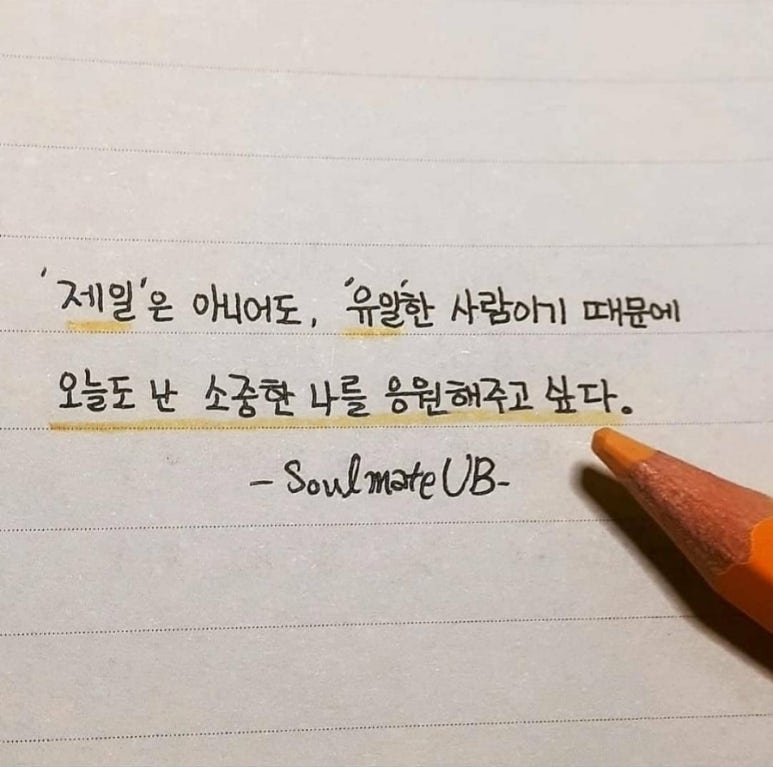 '제일'은 아니어도, '유일'한 사람이기 때문에
오늘도 난 소중한 나를 응원해주고 싶다.
-Soulmate UB-